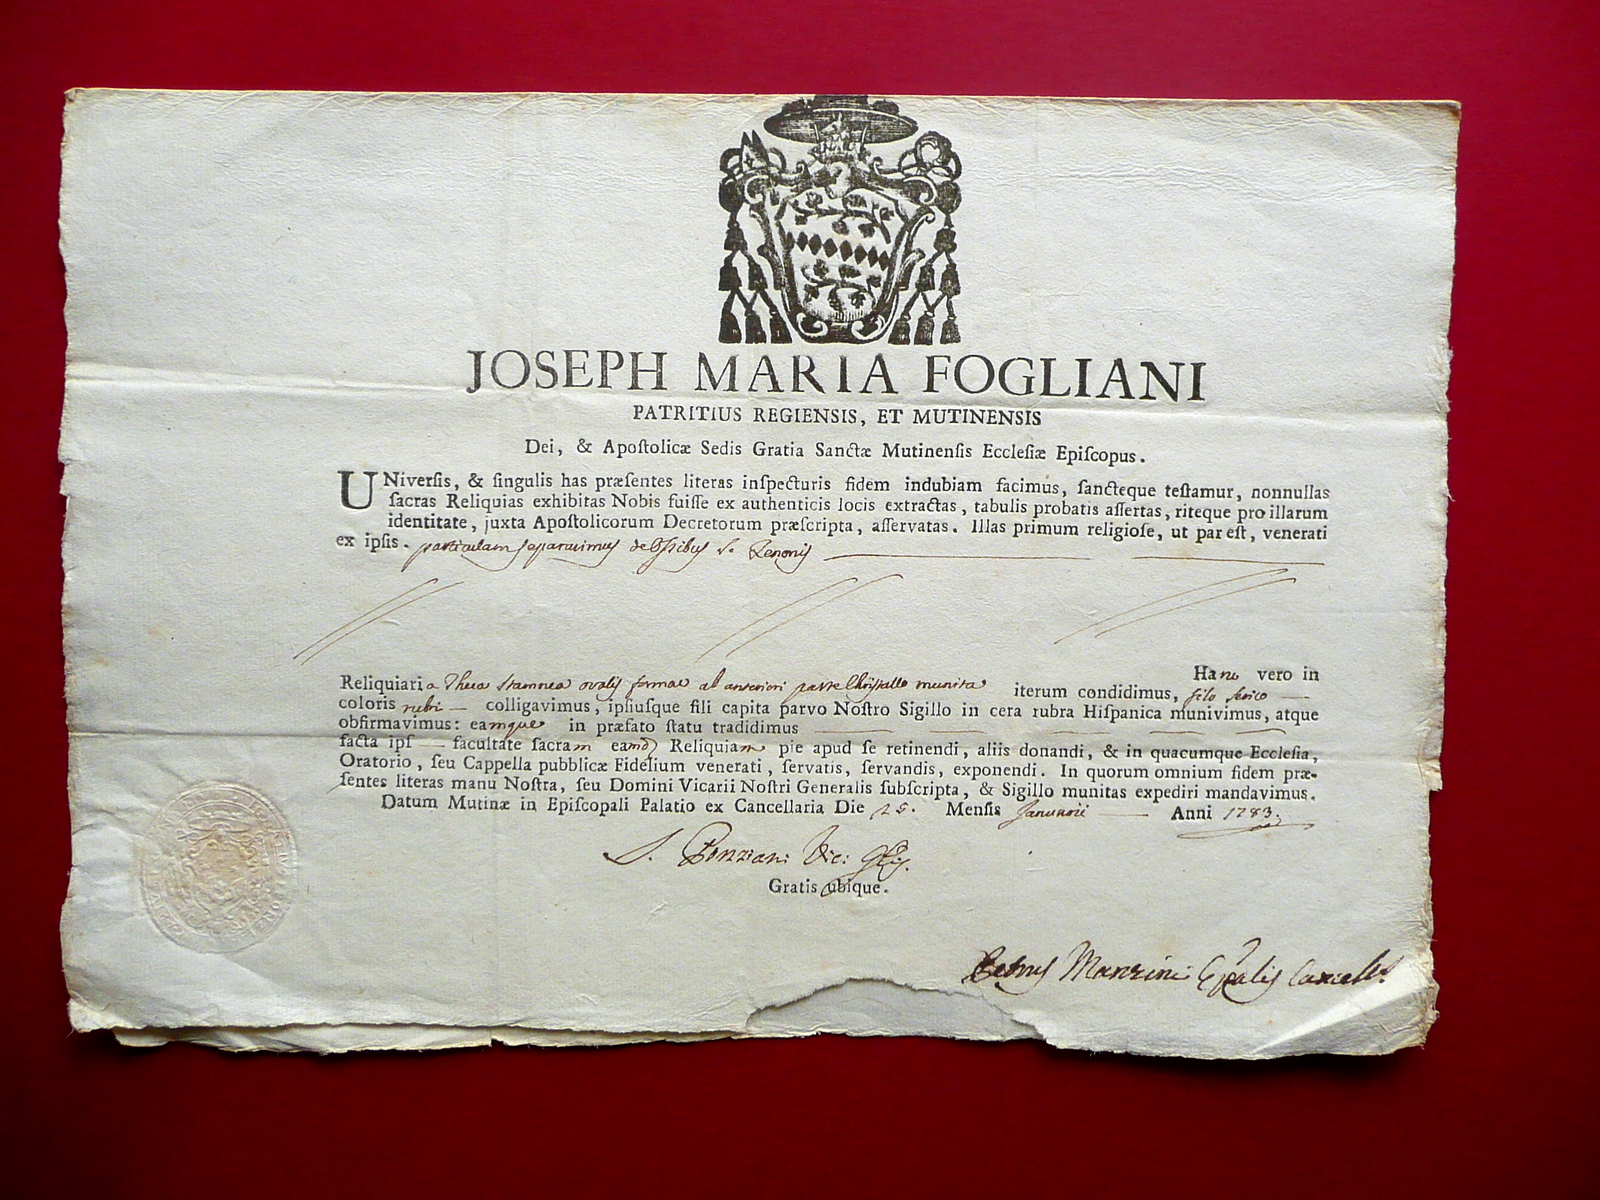 JOSEPH MARIA FOGLIANI
PATRITIUS REGIENSIS, ET MUTINENSIS
Dei, & Apoſtolicæ Sedis Gratia Sanctæ Mutinenſis Eccleſiæ Epiſcopus.
UNiverſis, & ſingulis has præſentes literas inſpecturis fidem indubiam facimus, ſancteque teſtamur, nonnullas
ſacras Reliquias exhibitas Nobis fuiſſe ex authenticis locis extractas, tabulis probatis aſſertas, riteque pro illarum
identitate, juxta Apoſtolicorum Decretorum præſcripta, aſſervatas. Illas primum religioſe, ut par eſt, venerati
ex ipſis. particulam separavimus de Ossibus S. Zenonis
Hanc vero in
Reliquiario Theca stamnea ovalis formae ab anteriori parte Christallo munita iterum condidimus, filo serico
coloris rubri colligavimus, ipſiuſque fili capita parvo Noſtro Sigillo in cera rubra Hiſpanica munivimus, atque
obfirmavimus: eamque in præfato ſtatu tradidimus
facta ipſ facultate ſacram eamd Reliquiam pie apud ſe retinendi, aliis donandi, & in quacumque Eccleſia,
Oratorio, ſeu Cappella publicæ Fidelium venerati, ſervatis, ſervandis, exponendi. In quorum omnium fidem præ-
ſentes literas manu Noſtra, ſeu Domini Vicarii Noſtri Generalis ſubſcripta, & Sigillo munitas expediri mandavimus.
Datum Mutinæ in Epiſcopali Palatio ex Cancellaria Die 25. Menſis Januarii Anni 1783.
S. Ponziani Vic: Glis.
Gratis ubique.
Petrus Manzini Eplis Cancell.s